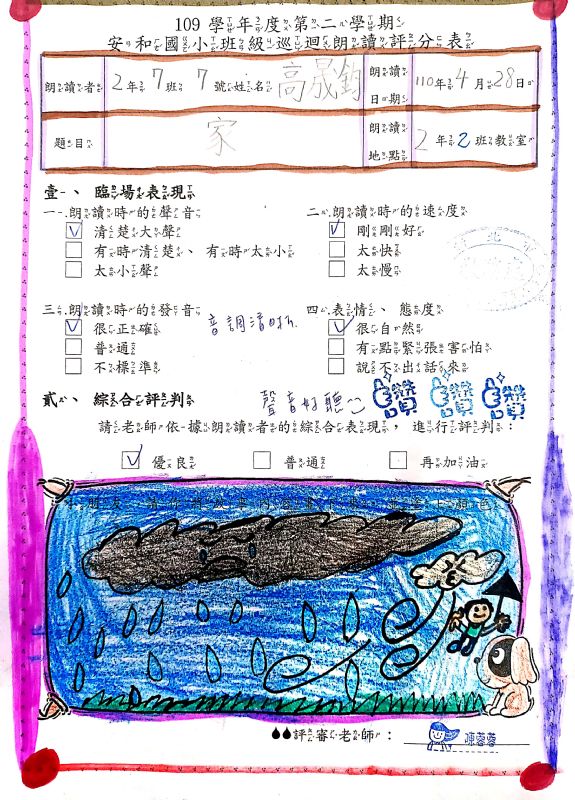 109 學年度第二學期
安和國小班級巡迴朗讀評分表
朗讀者 2年7班 7號姓名 高晟鈞 朗讀日期 110年4月28日
題目 家 朗讀地點 2年2班教室
壹、臨場表現
一、朗讀時的聲音
清楚大聲
有時清楚、有時太小
太小聲
二、朗讀時的速度
剛剛好
太快
太慢
三、朗讀時的發音
很正確
普通
不標準
音調清晰
四、表情、態度
很自然
有點緊張害怕
說不出話來
貳、綜合評判
聲音好聽
讚 讚 讚
請老師依據朗讀者的綜合表現，進行評判：
優良 普通 再加油
評審老師：陳蓉蓉